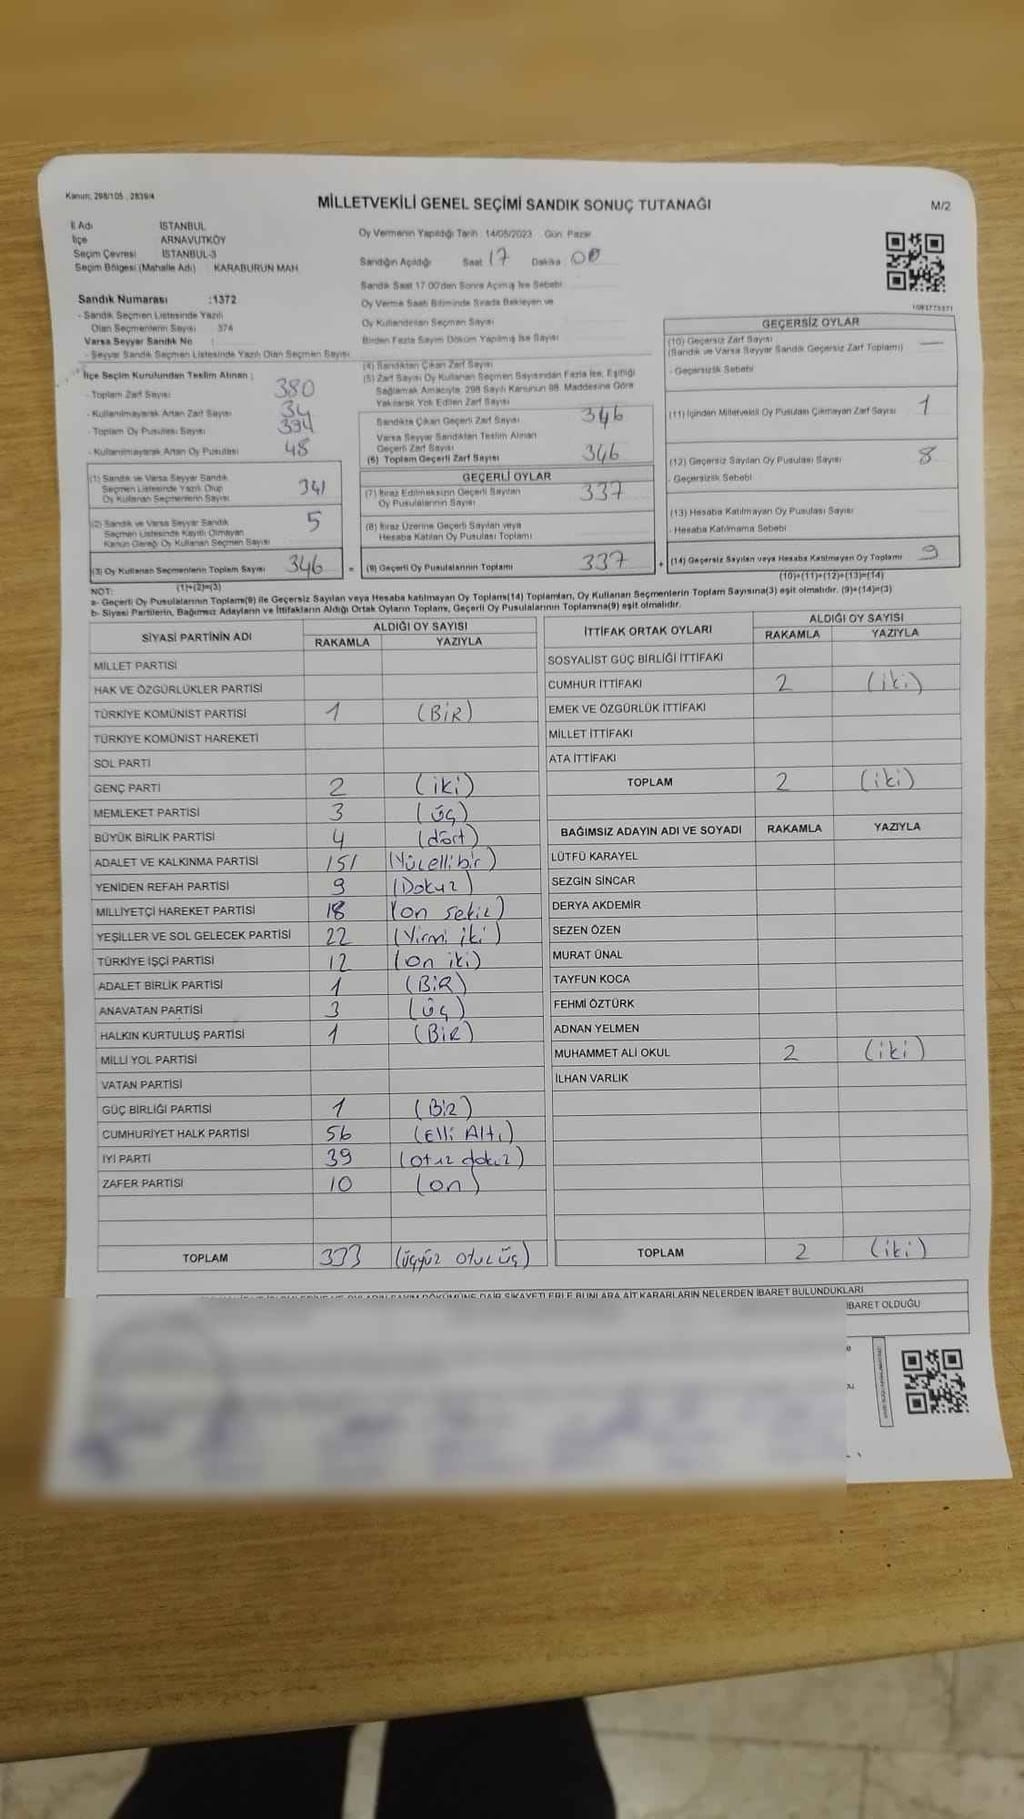 Kanun; 298/105 , 2839/4
MİLLETVEKİLİ GENEL SEÇİMİ SANDIK SONUÇ TUTANAĞI
M/2
İl Adı İSTANBUL
İlçe ARNAVUTKÖY
Seçim Çevresi İSTANBUL-3
Seçim Bölgesi (Mahalle Adı) KARABURUN MAH.
Sandık Numarası :1372
- Sandık Seçmen Listesinde Yazılı
Olan Seçmenlerin Sayısı 374
Varsa Seyyar Sandık No :
- Seyyar Sandık Seçmen Listesinde Yazılı Olan Seçmen Sayısı
Oy Vermenin Yapıldığı Tarih : 14/05/2023 Gün: Pazar
Sandığın Açıldığı Saat 17 Dakika 00
Sandık Saat 17:00'den Sonra Açılmış İse Sebebi
Oy Verme Saati Bitiminde Sırada Bekleyen ve
Oy Kullandırılan Seçmen Sayısı
Birden Fazla Sayım Döküm Yapılmış İse Sayısı
İlçe Seçim Kurulundan Teslim Alınan ;
- Toplam Zarf Sayısı 380
- Kullanılmayarak Artan Zarf Sayısı 34
- Toplam Oy Pusulası Sayısı 394
- Kullanılmayarak Artan Oy Pusulası 48
(1) Sandık ve Varsa Seyyar Sandık
Seçmen Listesinde Yazılı Olup
Oy Kullanan Seçmenlerin Sayısı 341
(2) Sandık ve Varsa Seyyar Sandık
Seçmen Listesinde Kayıtlı Olmayan
Kanun Gereği Oy Kullanan Seçmen Sayısı 5
(3) Oy Kullanan Seçmenlerin Toplam Sayısı 346
(1)+(2)=(3)
(4) Sandıktan Çıkan Zarf Sayısı
(5) Zarf Sayısı Oy Kullanan Seçmen Sayısından Fazla İse, Eşitliği
Sağlamak Amacıyla; 298 Sayılı Kanunun 98. Maddesine Göre
Yakılarak Yok Edilen Zarf Sayısı
Sandıkta Çıkan Geçerli Zarf Sayısı 346
Varsa Seyyar Sandıktan Teslim Alınan
Geçerli Zarf Sayısı
(6) Toplam Geçerli Zarf Sayısı 346
GEÇERLİ OYLAR
(7) İtiraz Edilmeksizin Geçerli Sayılan
Oy Pusulalarının Sayısı 337
(8) İtiraz Üzerine Geçerli Sayılan veya
Hesaba Katılan Oy Pusulası Toplamı
= (9) Geçerli Oy Pusulalarının Toplamı 337
GEÇERSİZ OYLAR
(10) Geçersiz Zarf Sayısı —
(Sandık ve Varsa Seyyar Sandık Geçersiz Zarf Toplamı)
- Geçersizlik Sebebi
(11) İçinden Milletvekili Oy Pusulası Çıkmayan Zarf Sayısı 1
(12) Geçersiz Sayılan Oy Pusulası Sayısı 8
- Geçersizlik Sebebi
(13) Hesaba Katılmayan Oy Pusulası Sayısı
- Hesaba Katılmama Sebebi
+ (14) Geçersiz Sayılan veya Hesaba Katılmayan Oy Toplamı 9
(10)+(11)+(12)+(13)=(14)
NOT:
a- Geçerli Oy Pusulalarının Toplamı(9) ile Geçersiz Sayılan veya Hesaba katılmayan Oy Toplamı(14) Toplamları, Oy Kullanan Seçmenlerin Toplam Sayısına(3) eşit olmalıdır. (9)+(14)=(3)
b- Siyasi Partilerin, Bağımsız Adayların ve İttifakların Aldığı Ortak Oyların Toplamı, Geçerli Oy Pusulalarının Toplamına(9) eşit olmalıdır.
SİYASİ PARTİNİN ADI ALDIĞI OY SAYISI
RAKAMLA YAZIYLA
MİLLET PARTİSİ
HAK VE ÖZGÜRLÜKLER PARTİSİ
TÜRKİYE KOMÜNİST PARTİSİ 1 (BİR)
TÜRKİYE KOMÜNİST HAREKETİ
SOL PARTİ
GENÇ PARTİ 2 (iki)
MEMLEKET PARTİSİ 3 (üç)
BÜYÜK BİRLİK PARTİSİ 4 (dört)
ADALET VE KALKINMA PARTİSİ 151 (Yücellibir)
YENİDEN REFAH PARTİSİ 9 (Dokuz)
MİLLİYETÇİ HAREKET PARTİSİ 18 (on sekiz)
YEŞİLLER VE SOL GELECEK PARTİSİ 22 (Yirmi iki)
TÜRKİYE İŞÇİ PARTİSİ 12 (on iki)
ADALET BİRLİK PARTİSİ 1 (BİR)
ANAVATAN PARTİSİ 3 (üç)
HALKIN KURTULUŞ PARTİSİ 1 (BİR)
MİLLİ YOL PARTİSİ
VATAN PARTİSİ
GÜÇ BİRLİĞİ PARTİSİ 1 (Bir)
CUMHURİYET HALK PARTİSİ 56 (Elli Altı)
İYİ PARTİ 39 (otuz dokuz)
ZAFER PARTİSİ 10 (on)
TOPLAM 333 (üçyüz otuz üç)
İTTİFAK ORTAK OYLARI ALDIĞI OY SAYISI
RAKAMLA YAZIYLA
SOSYALİST GÜÇ BİRLİĞİ İTTİFAKI
CUMHUR İTTİFAKI 2 (iki)
EMEK VE ÖZGÜRLÜK İTTİFAKI
MİLLET İTTİFAKI
ATA İTTİFAKI
TOPLAM 2 (iki)
BAĞIMSIZ ADAYIN ADI VE SOYADI RAKAMLA YAZIYLA
LÜTFÜ KARAYEL
SEZGİN SİNCAR
DERYA AKDEMİR
SEZEN ÖZEN
MURAT ÜNAL
TAYFUN KOCA
FEHMİ ÖZTÜRK
ADNAN YELMEN
MUHAMMET ALİ OKUL 2 (iki)
İLHAN VARLIK
TOPLAM 2 (iki)
DÖKÜMÜNE DAİR ŞİKAYETLERLE BUNLARA AİT KARARLARIN NELERDEN İBARET BULUNDUKLARI
İBARET OLDUĞU